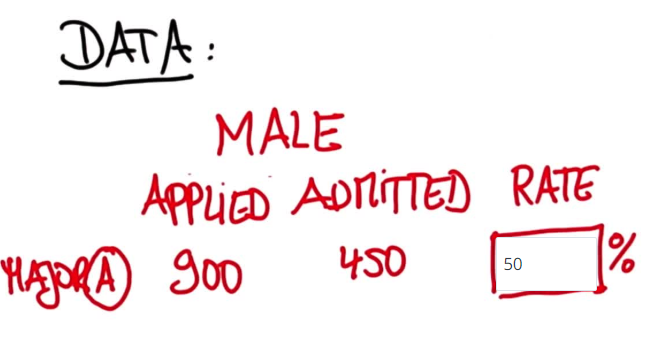 DATA:
MALE
APPLIED ADMITTED RATE
MAJOR A 900 450 50 %